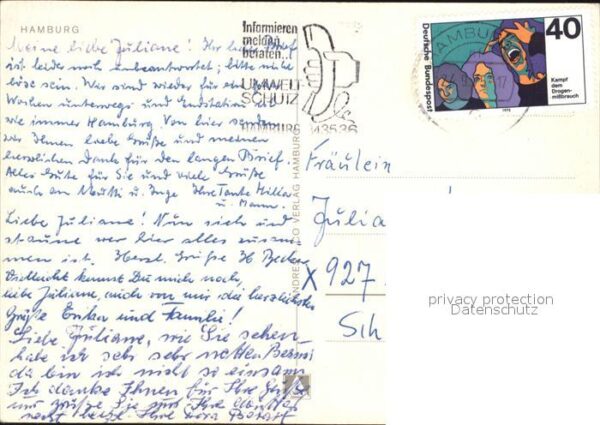 HAMBURG
Meine liebe Juliane! Ihr lieber Brief
ist leider noch unbeantwortet; bitte nicht
böse sein. Wir sind wieder für ein
Wochen unterwegs und Endstation ist
wie immer Hamburg Von hier senden
wir Ihnen liebe Grüße und meinen
herzlichen Dank für den langen Brief.
Alles Gute für Sie und viele Grüße
auch an Mutti u. Inge Ihre Tante
u. Mann.
Liebe Juliane! Nun sieh und
staune wer hier alles zusam-
men ist. Herzl. Grüße
Vielleicht kennst Du mich noch,
liebe Juliane, auch von mir die herzlichsten
Grüße Erika und Familie!
Liebe Juliane, wie Sie sehen
habe ich sehr sehr netten Besuch
da bin ich nicht so einsam
Ich danke Ihnen für Ihre Grüße
und grüße Sie und Ihre
recht herzl. Ihre
Informieren
melden
beraten..!
UMWELT-
SCHUTZ
HAMBURG 343536
ANDRES + CO VERLAG HAMBURG
HAMBURG
17
40
Deutsche Bundespost
Kampf
dem
Drogen-
mißbrauch
1975
Fräulein
Julia
X 927
Sch
privacy protection
Datenschutz